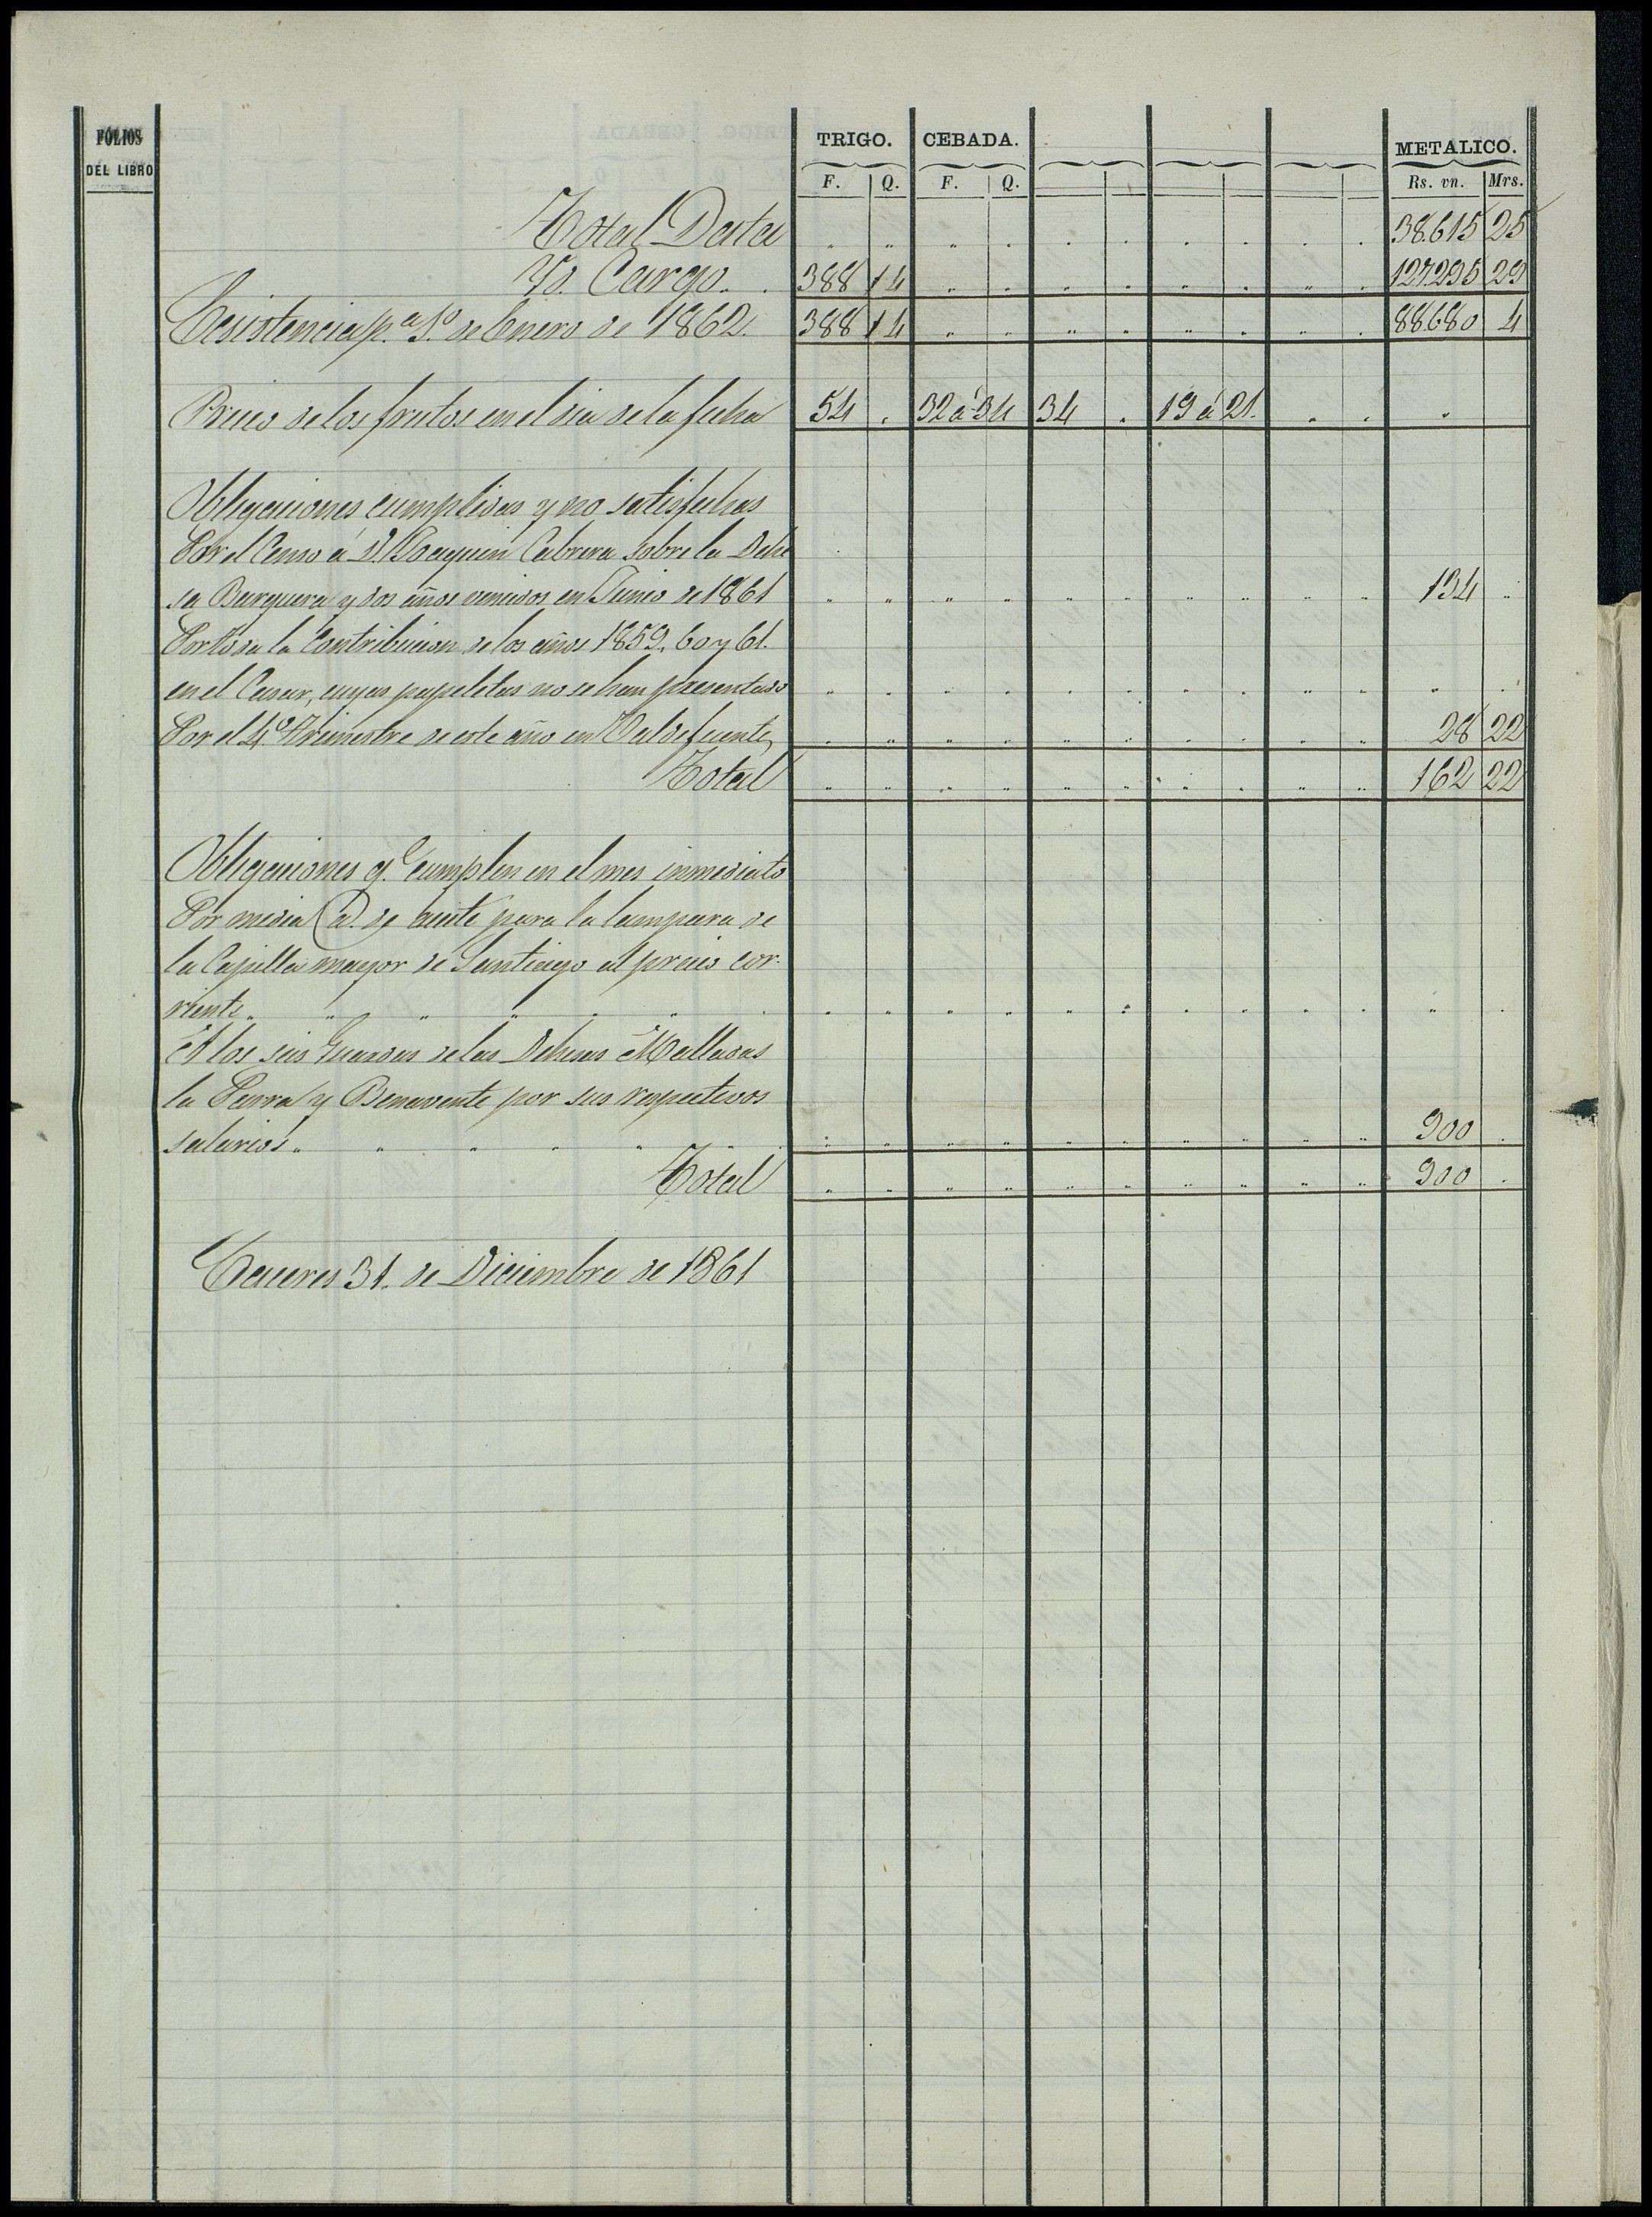 FÓLIOS DEL LIBRO TRIGO. CEBADA. METALICO.
F. Q. F. Q. Rs. vn. Mrs.
Total Data 38.615 25
Yd. Cargo. 388 14 127.295 29
Existencia p.ª 1.º de Enero de 1862. 388 14 88.680 4
Precio de los frutos en el dia de la fecha 54 32 á 34 34 19 á 21.
Obligaciones cumplidas y no satisfechas
Por el Censo á D. Joaquin Cabrera sobre la Dehe
sa Burguera y dos años vencidos en Junio de 1861 134
Por toda la Contribucion de los años 1859, 60 y 61.
en el Casar, cuyas papeletas no se han presentado
Por el 4.º Trimestre de este año en Valdefuentes 28 22
Total 162 22
Obligaciones q.e cumplen en el mes inmediato
Por media @. de aceite para la lampara de
la Capilla mayor de Santiago al precio cor-
riente
A los seis Guardas de las Dehesas Malladas
la Parra y Benavente por sus respectivos
salarios 900
Total 900
Caceres 31. de Diciembre de 1861